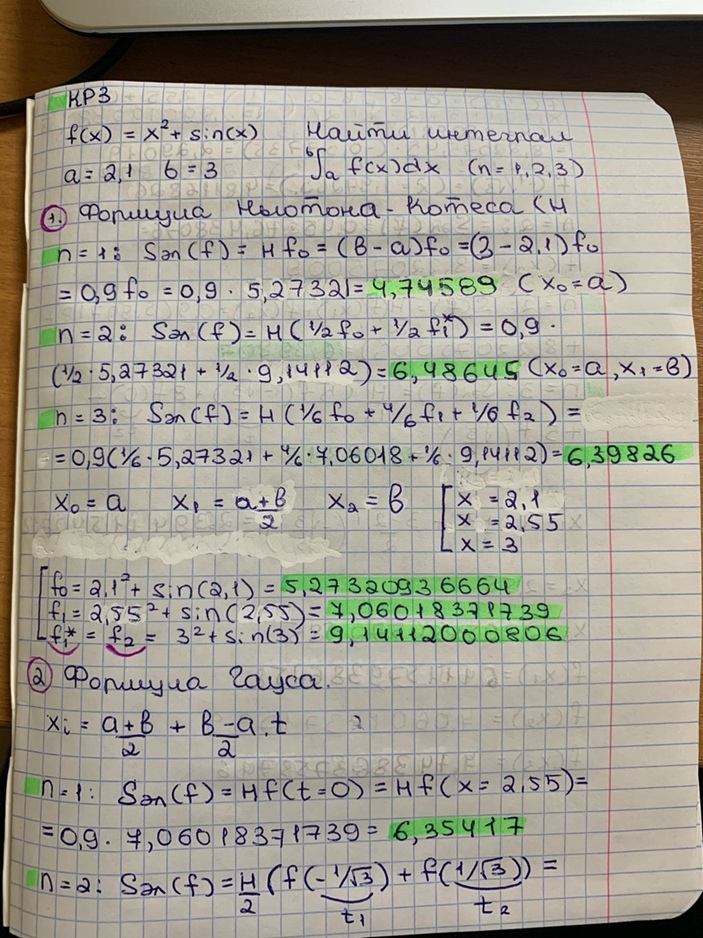 КР3
f(x) = x² + sin(x) Найти интеграл
a = 2,1 b = 3 ᵇ∫ₐ f(x)dx (n = 1, 2, 3)
1. Формула Ньютона - Котеса (H
n = 1: Sэл(f) = Hf₀ = (b - a)f₀ = (3 - 2,1)f₀
= 0,9f₀ = 0,9 · 5,27321 = 4,74589 (x₀ = a)
n = 2: Sэл(f) = H(1/2 f₀ + 1/2 f₁*) = 0,9 ·
(1/2 · 5,27321 + 1/2 · 9,14112) = 6,48645 (x₀ = a, x₁ = b)
n = 3: Sэл(f) = H(1/6 f₀ + 4/6 f₁ + 1/6 f₂) =
= 0,9(1/6 · 5,27321 + 4/6 · 7,06018 + 1/6 · 9,14112) = 6,39826
x₀ = a x₁ = (a+b)/2 x₂ = b [x = 2,1
x = 2,55
x = 3
[f₀ = 2,1² + sin(2,1) = 5,27320936664
f₁ = 2,55² + sin(2,55) = 7,06018371739
f₁* = f₂ = 3² + sin(3) = 9,14112000806
2 Формула Гауса.
xᵢ = (a+b)/2 + (b-a)/2 · t
n = 1: Sэл(f) = Hf(t=0) = Hf(x = 2,55) =
= 0,9 · 7,06018371739 = 6,35417
n = 2: Sэл(f) = H/2 (f(-1/√3) + f(1/√3)) =
t₁ t₂